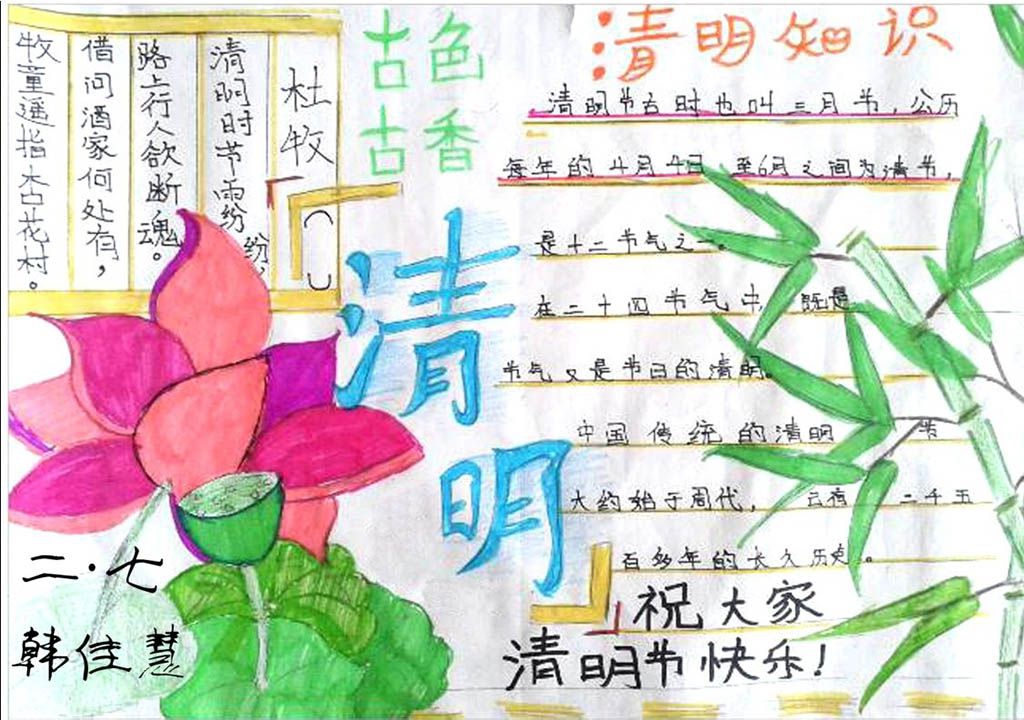 杜牧
清明时节雨纷纷,
路上行人欲断魂。
借问酒家何处有,
牧童遥指杏花村。
古色
古香
清明
清明知识
清明节古时也叫三月节,公历
每年的4月4日 至6月之间为清节,
是十二节气之一。
在二十四节气中, 既是
节气又是节日的清明。
中国传统的清明 节
大约始于周代, 二千五
百多年的长久历史。
祝大家
清明节快乐!
二·七
韩佳慧